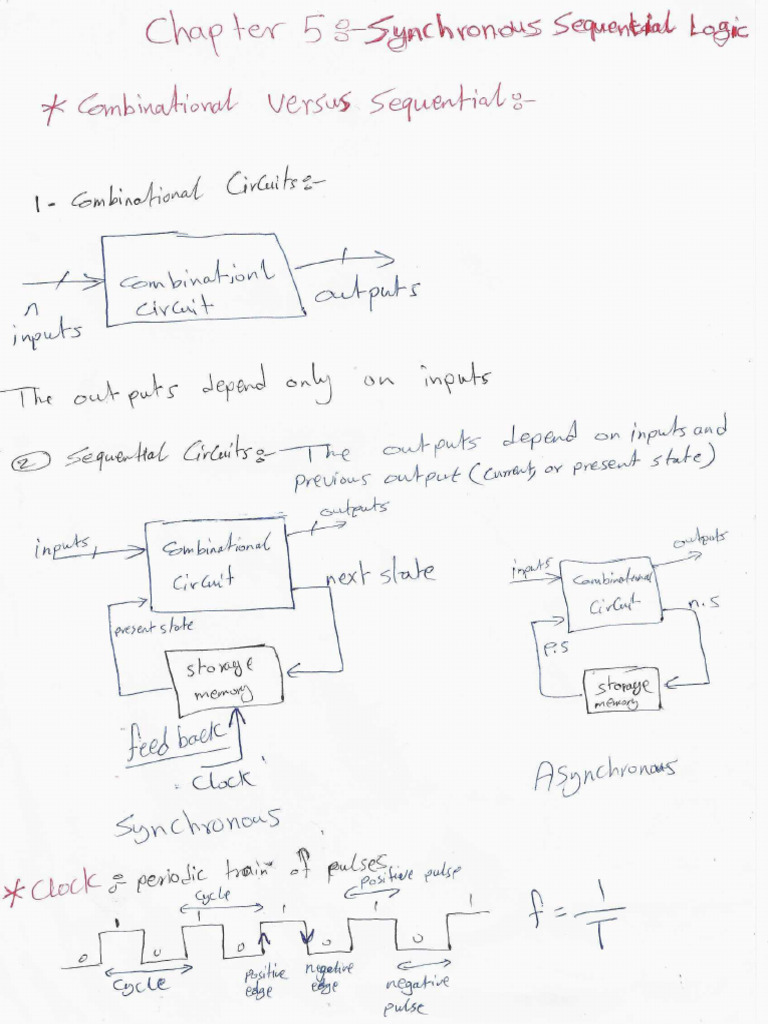 Chapter 5:- Synchronous Sequential Logic
* Combinational Versus Sequential:-
1- Combinational Circuits:-
Combinationl
Circuit
n
inputs
outputs
The outputs depend only on inputs
② Sequential Circuits:- The outputs depend on inputs and
previous output (current, or present state)
inputs
Combinational
Circuit
outputs
next state
present state
storage
memory
feedback
Clock
Synchronous
inputs
Combinational
Circuit
outputs
n.s
P.S
storage
memory
Asynchronous
* Clock :- periodic train of pulses
cycle
positive pulse
0 1 0 1 0 1 0 1 0 1
cycle
positive
edge
negative
edge
negative
pulse
f = 1/T